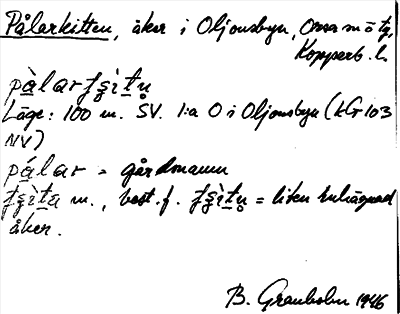 Pålarkitten, åker i Oljonsbyn, Orsa m ö tg,
Kopparb. l.
pàlarʈʂìtu̥
Läge: 100 m. SV. 1:a O i Oljonsbyn (kG 103
NV)
pálar = gårdsnamn
ʈʂìta m., best. f. ʈʂìtu̥ = liten inhägnad
åker.
B. Granholm 1946